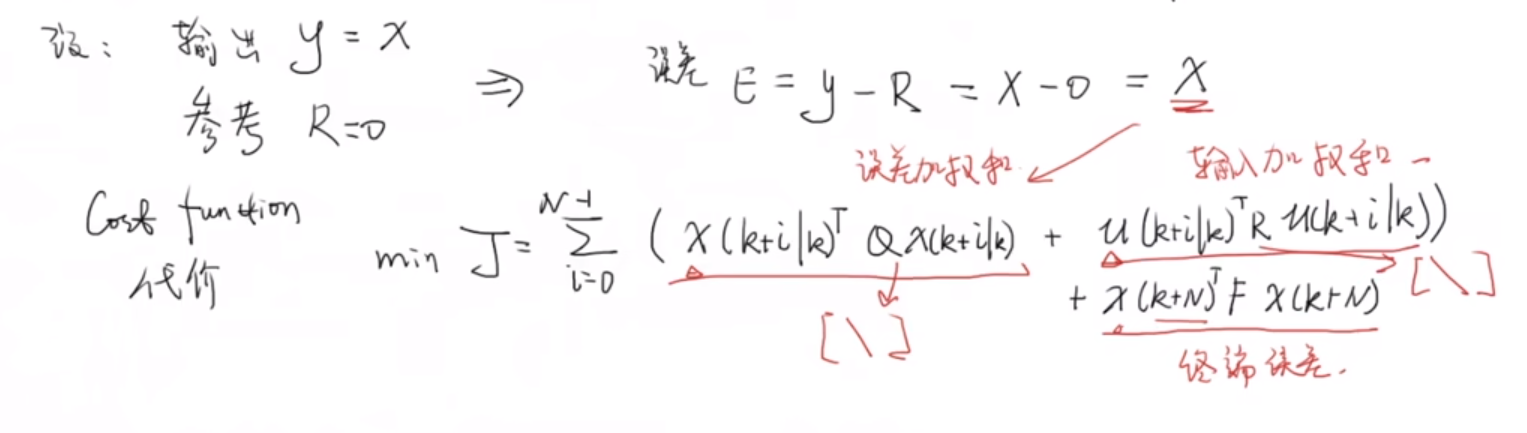 设: 输出 y = x
参考 R=0
⇒ 误差 E = y - R = x - 0 = x
误差加权和 输入加权和
Cost function
代价
min J = \sum_{i=0}^{N-1} ( x(k+i|k)^T Q x(k+i|k) + u(k+i|k)^T R u(k+i|k))
+ x(k+N)^T F x(k+N)
[\] [\]
终端误差.